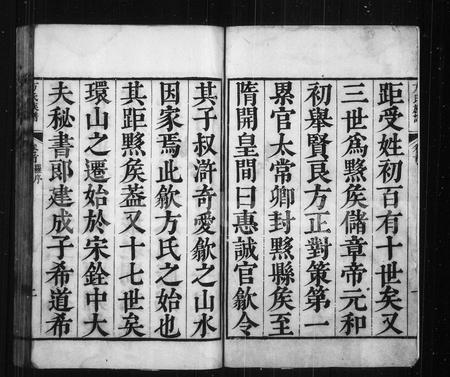 距受姓初百有十世矣又
三世為黟矦儲章帝元和
初舉賢良方正對策第一
累官太常卿封黟縣矦至
隋開皇間曰惠誠官歙令
其子叔滸奇愛歙之山水
因家焉此歙方氏之始也
其距黟矦葢又十七世矣
環山之遷始於宋銓中大
夫秘書郎建成子希道希
方氏族譜